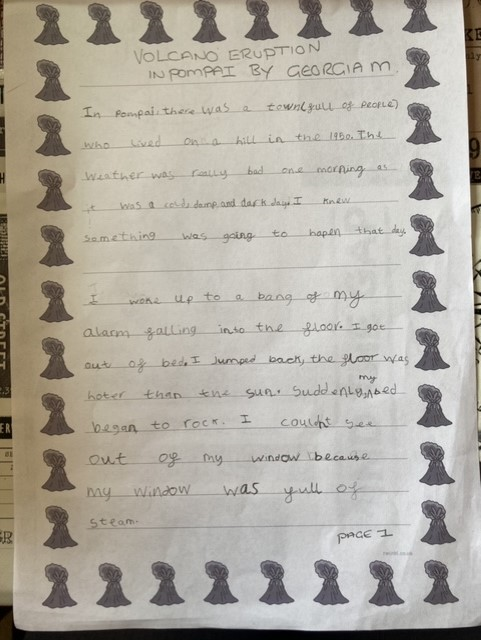 VOLCANO ERUPTION
IN POMPAI BY GEORGIA M.
In Pompai, there was a town (full of people)
who lived on a hill in the 1950. The
weather was really bad one morning as
it was a cold, damp and dark day. I knew
something was going to hapen that day.
I woke up to a bang of my
alarm falling into the floor. I got
out of bed. I jumped back, the floor was
hoter than the sun. Suddenly, my bed
began to rock. I couldn't see
out of my window because
my window was full of
steam.
PAGE 1